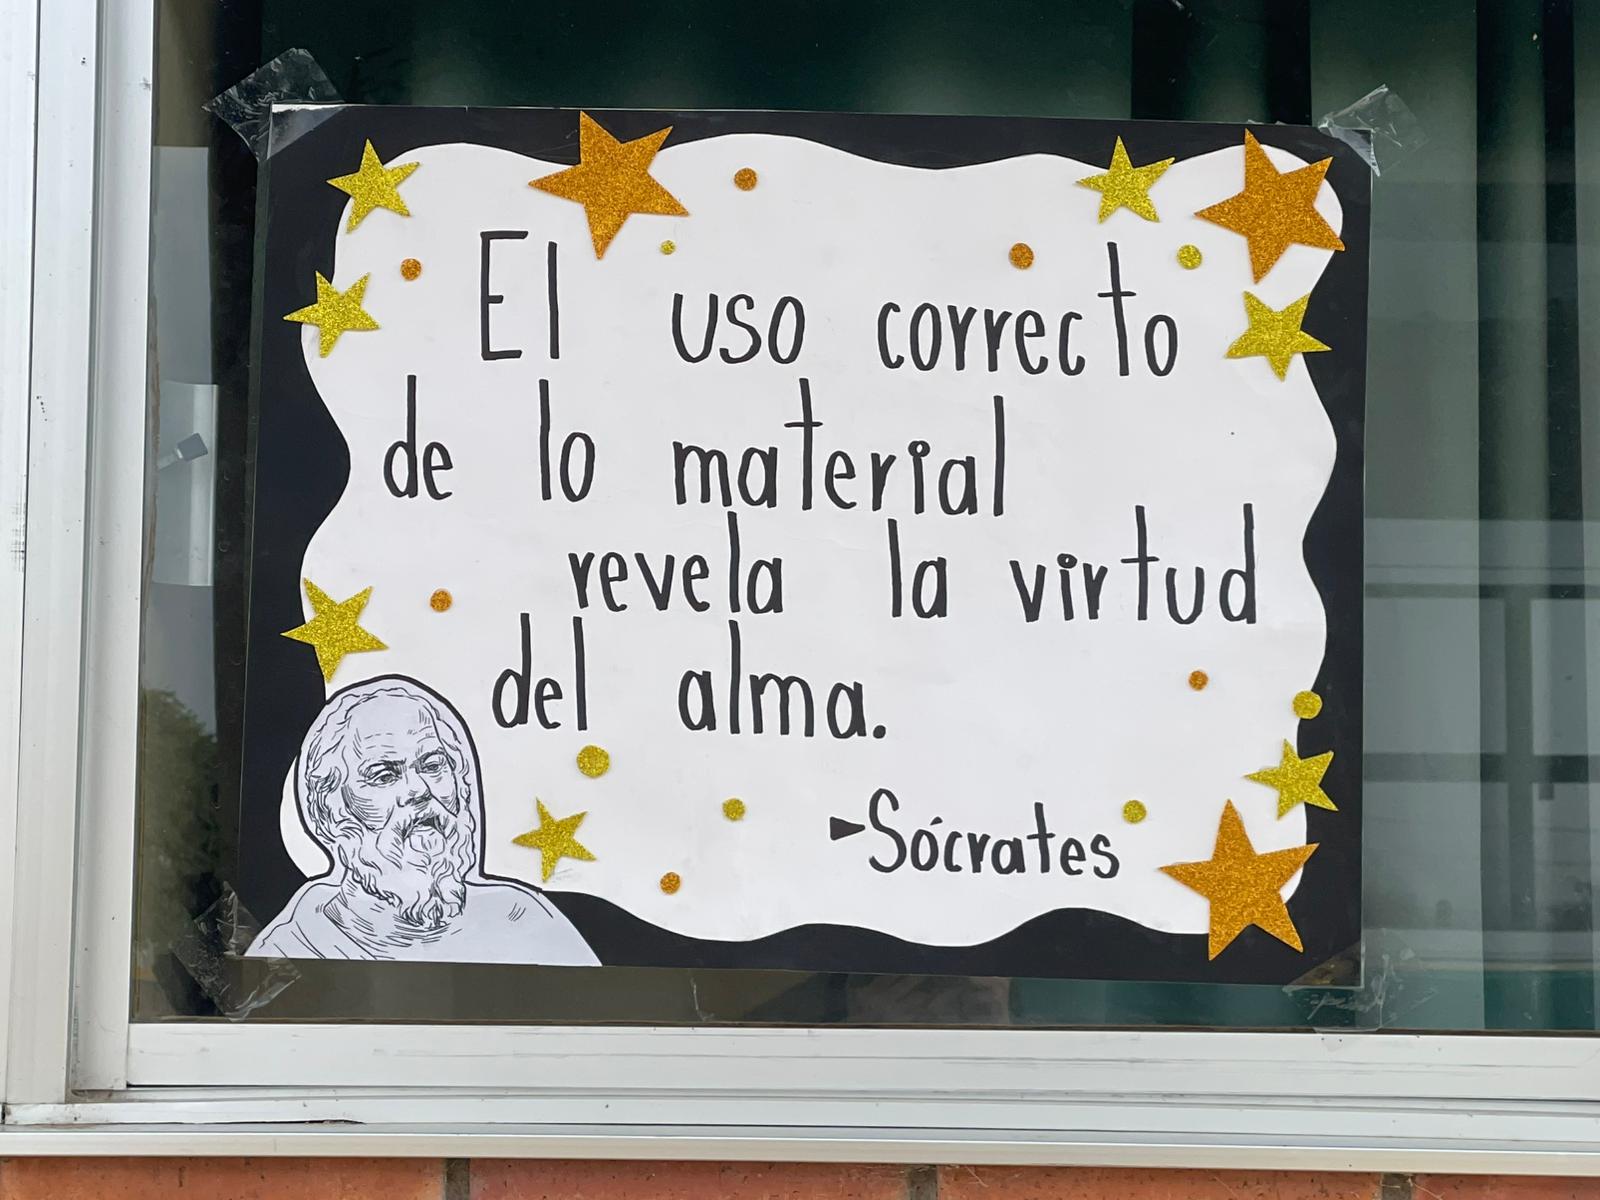 El uso correcto
de lo material
revela la virtud
del alma.
►Sócrates